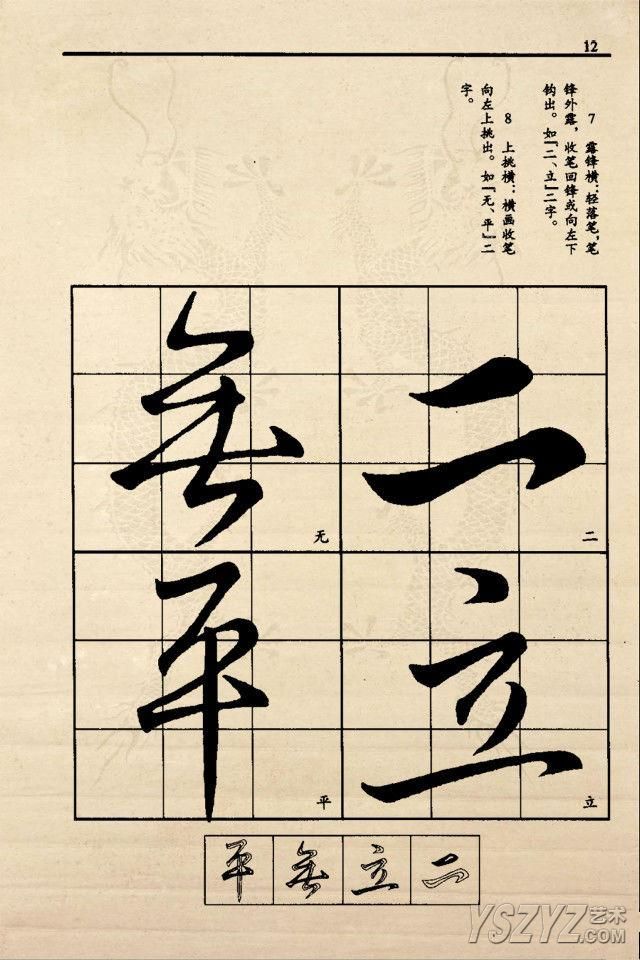 12
7　露锋横：轻落笔，笔
锋外露，收笔回锋或向左下
钩出。如「二、立」二字。
8　上挑横：横画收笔
向左上挑出。如「无、平」二
字。
二
立
无
平
二
立
无
平
平 無 立 二
YSZYZ艺术
.COM